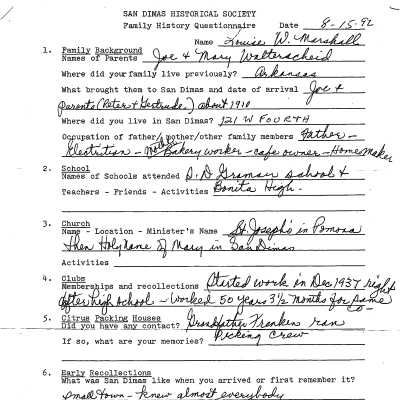 SAN DIMAS HISTORICAL SOCIETY
Family History Questionnaire Date 8-15-92
Name Louise W. Marshall
1. Family Background
Names of Parents Joe & Mary Walterscheid
Where did your family live previously? Arkansas
What brought them to San Dimas and date of arrival Joe &
parents (Peter & Gertrude) about 1910
Where did you live in San Dimas? 121 W FOURTH
Occupation of father/mother/other family members Father -
Electrition - Mother Bakery worker - cafe owner - HomeMaker
2. School
Names of Schools attended S.D Grammar school &
Teachers - Friends - Activities Bonita High -
3. Church
Name - Location - Minister's Name St Joseph's in Pomona
then Holy Name of Mary in San Dimas
Activities
4. Clubs
Memberships and recollections Started work in Dec 1937 right
after high school - Worked 50 years 3½ months for same
5. Citrus Packing Houses Co -
Did you have any contact? Grandfather Franken ran
If so, what are your memories? Picking crew
6. Early Recollections
What was San Dimas like when you arrived or first remember it?
small town - knew almost everybody